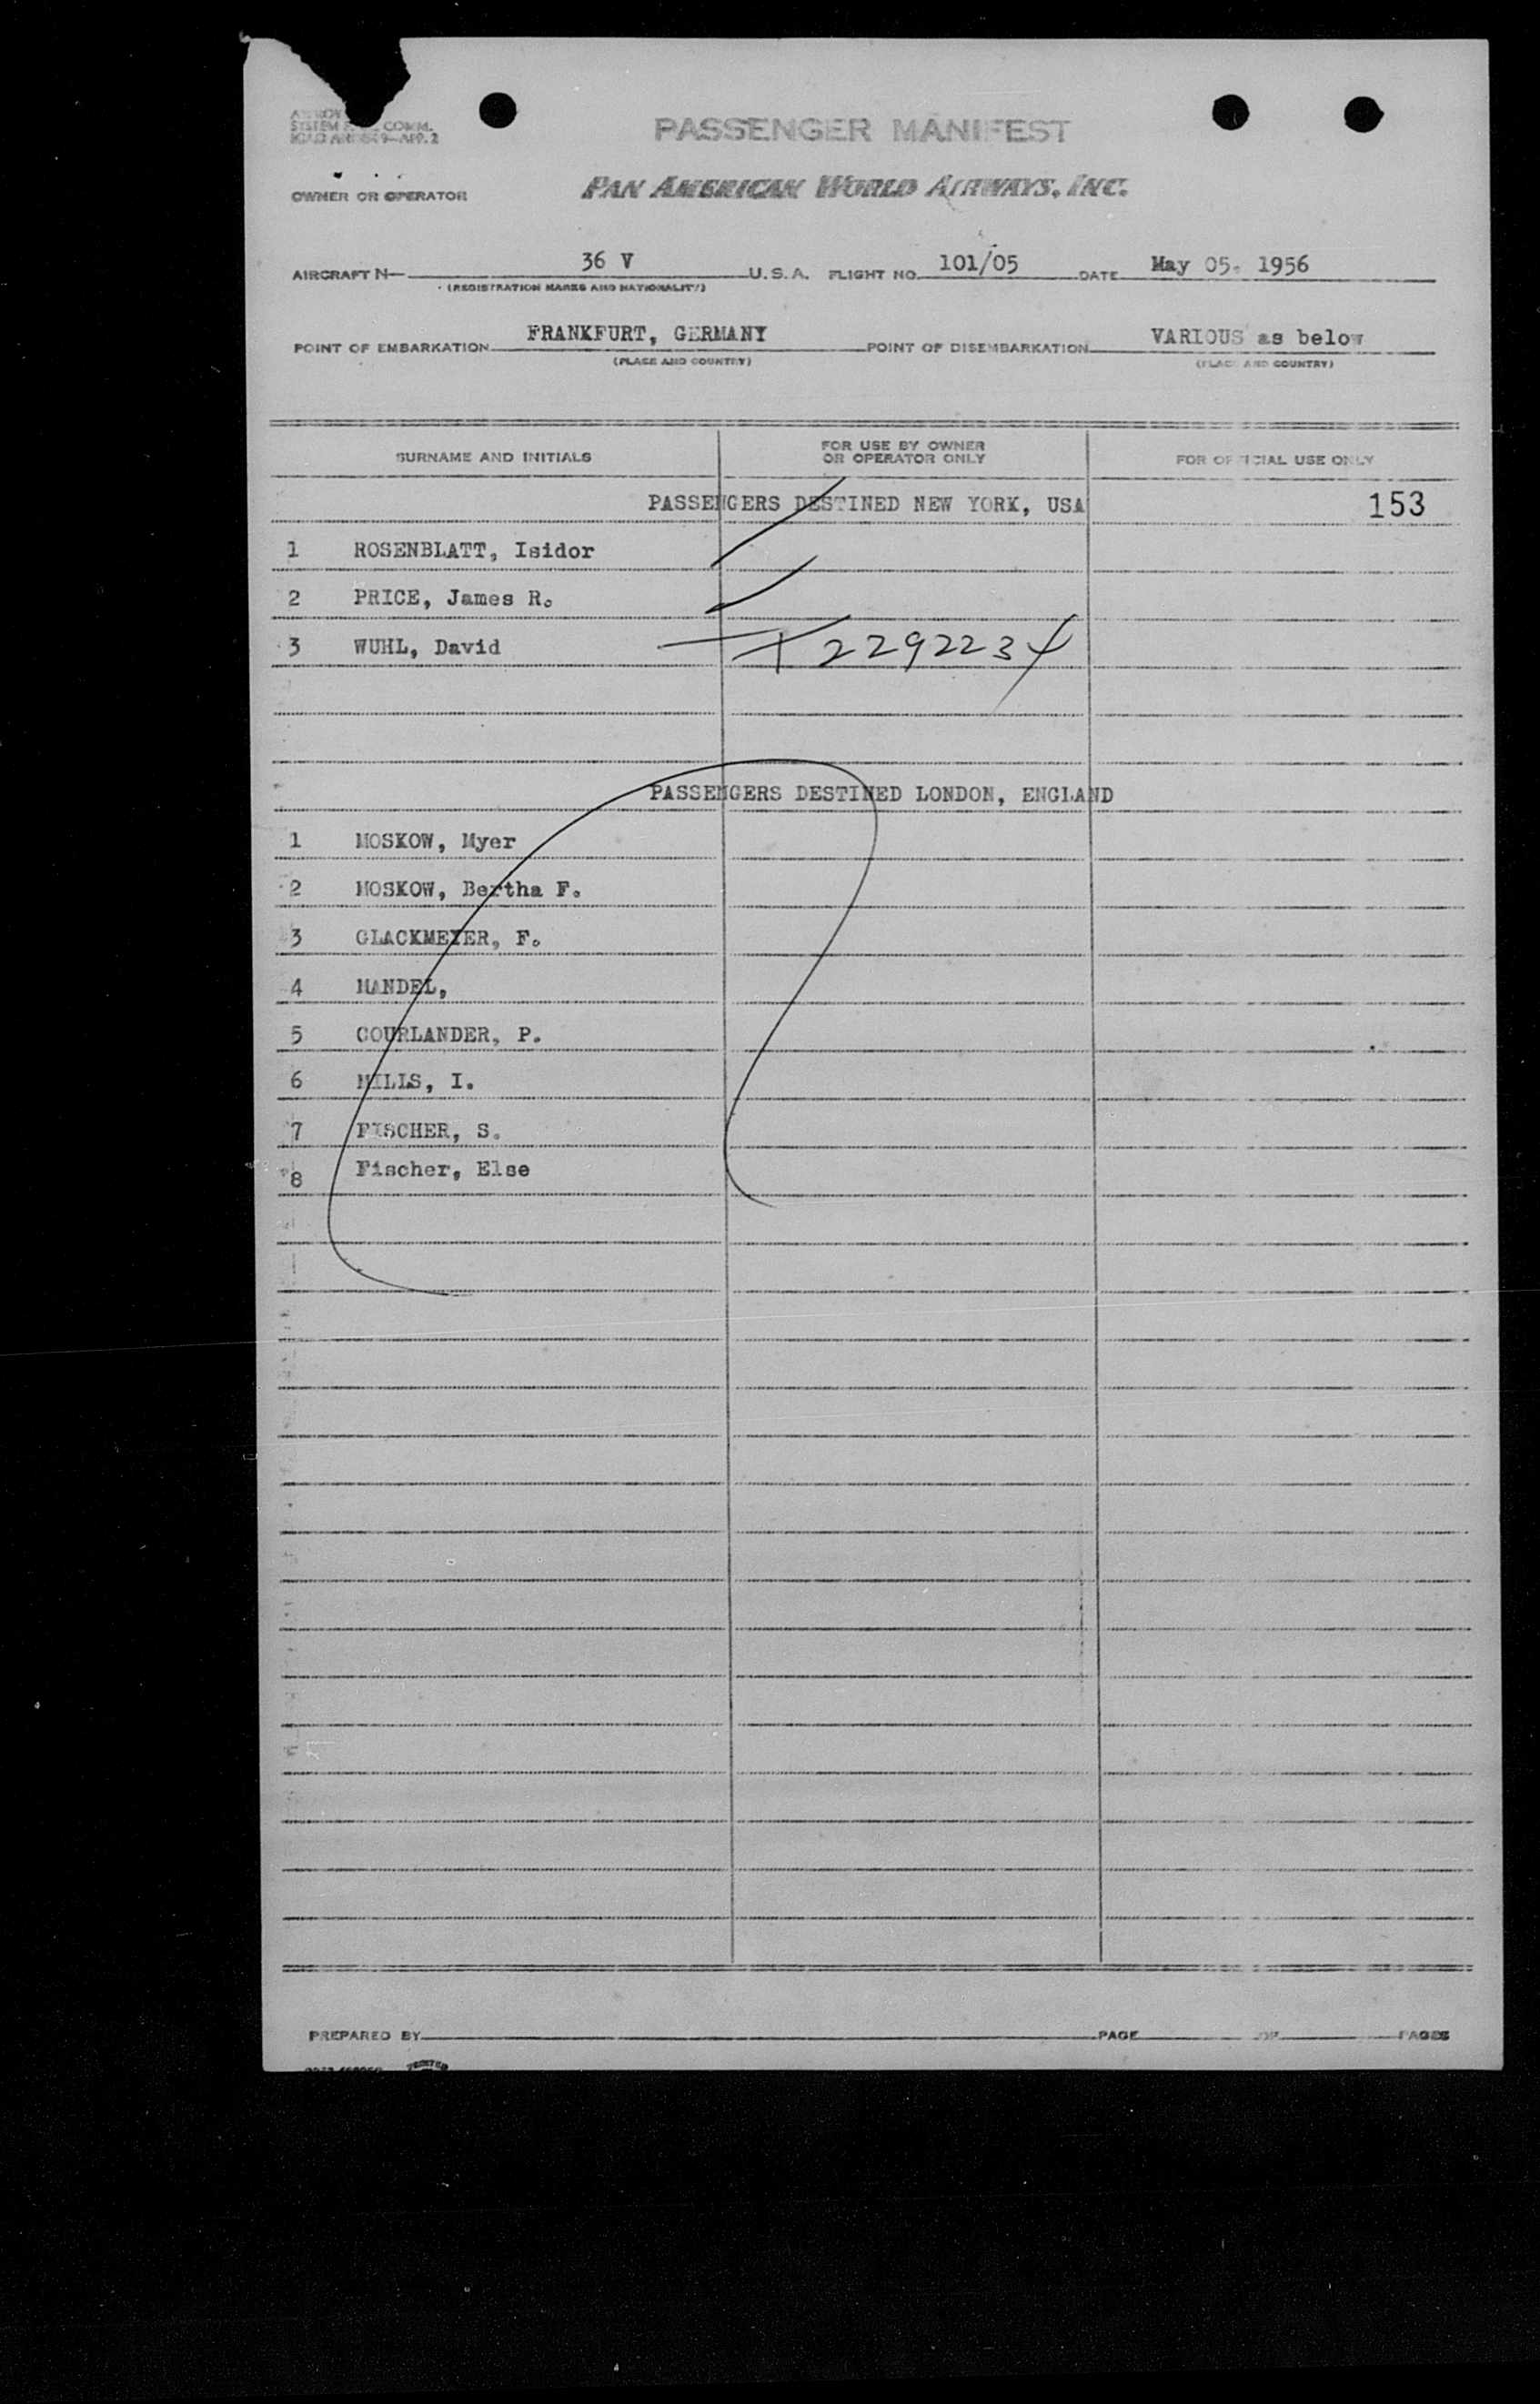 SYSTEM COMM.
PASSENGER MANIFEST
OWNER OR OPERATOR PAN AMERICAN WORLD AIRWAYS, INC.
AIRCRAFT N— 36 V U.S.A. FLIGHT NO. 101/05 DATE May 05. 1956
(REGISTRATION MARKS AND NATIONALITY)
POINT OF EMBARKATION FRANKFURT, GERMANY POINT OF DISEMBARKATION VARIOUS as below
(PLACE AND COUNTRY) (PLACE AND COUNTRY)
SURNAME AND INITIALS FOR USE BY OWNER OR OPERATOR ONLY FOR OFFICIAL USE ONLY
PASSENGERS DESTINED NEW YORK, USA 153
1 ROSENBLATT, Isidor
2 PRICE, James R.
3 WUHL, David 2292234
PASSENGERS DESTINED LONDON, ENGLAND
1 MOSKOW, Myer
2 MOSKOW, Bertha F.
3 GLACKMEYER, F.
4 MANDEL,
5 COURLANDER, P.
6 MILLS, I.
7 FISCHER, S.
8 Fischer, Else
PREPARED BY PAGE OF PAGES
PRINTED